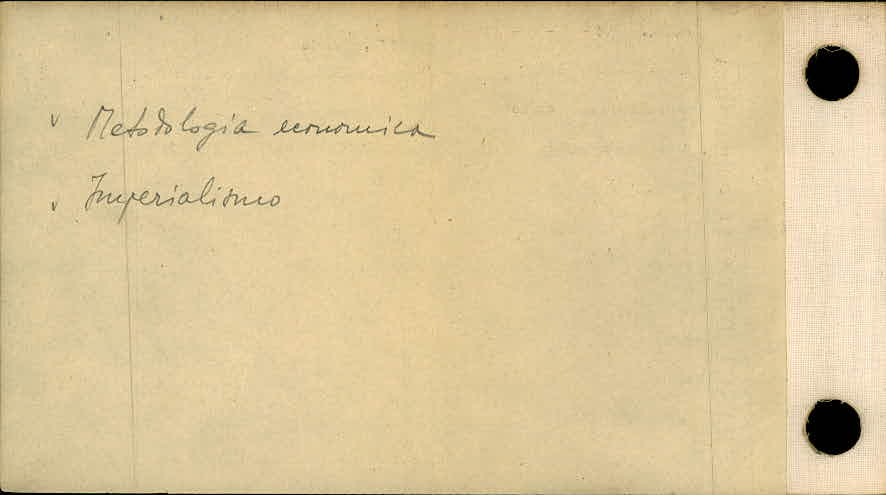 v Metodologia economica
v Imperialismo